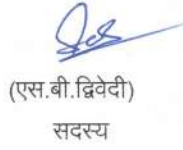 (एस.बी.द्विवेदी)
सदस्य